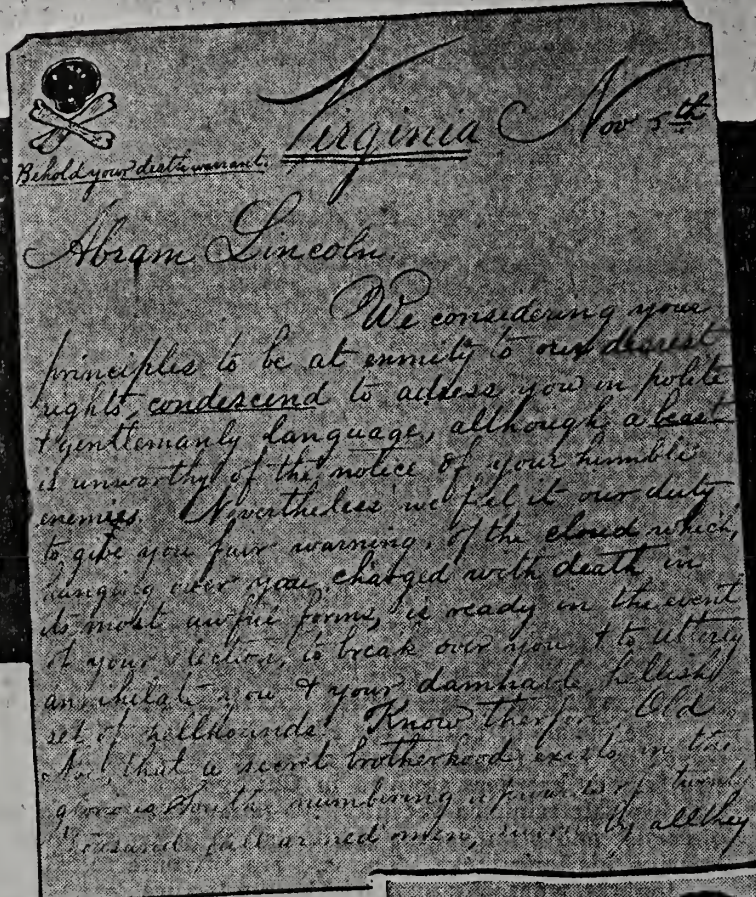 Virginia Nov 5th
Behold your death warrant.
Abram Lincoln.
We considering your
principles to be at enmity to our dearest
rights, condescend to address you in polite
& gentlemanly language, although a beast
is unworthy of the notice of your humble
enemies. Nevertheless we feel it our duty
to give you fair warning, of the cloud which,
hanging over you, charged with death in
its most awful forms, is ready in the event
of your election, to break over you & to utterly
annihilate you & your damnable, hellish
set of hellhounds. Know therfore, Old
that a secret brotherhood exists in this
glorious South numbering upwards of
thousand full armed men, sworn by all they